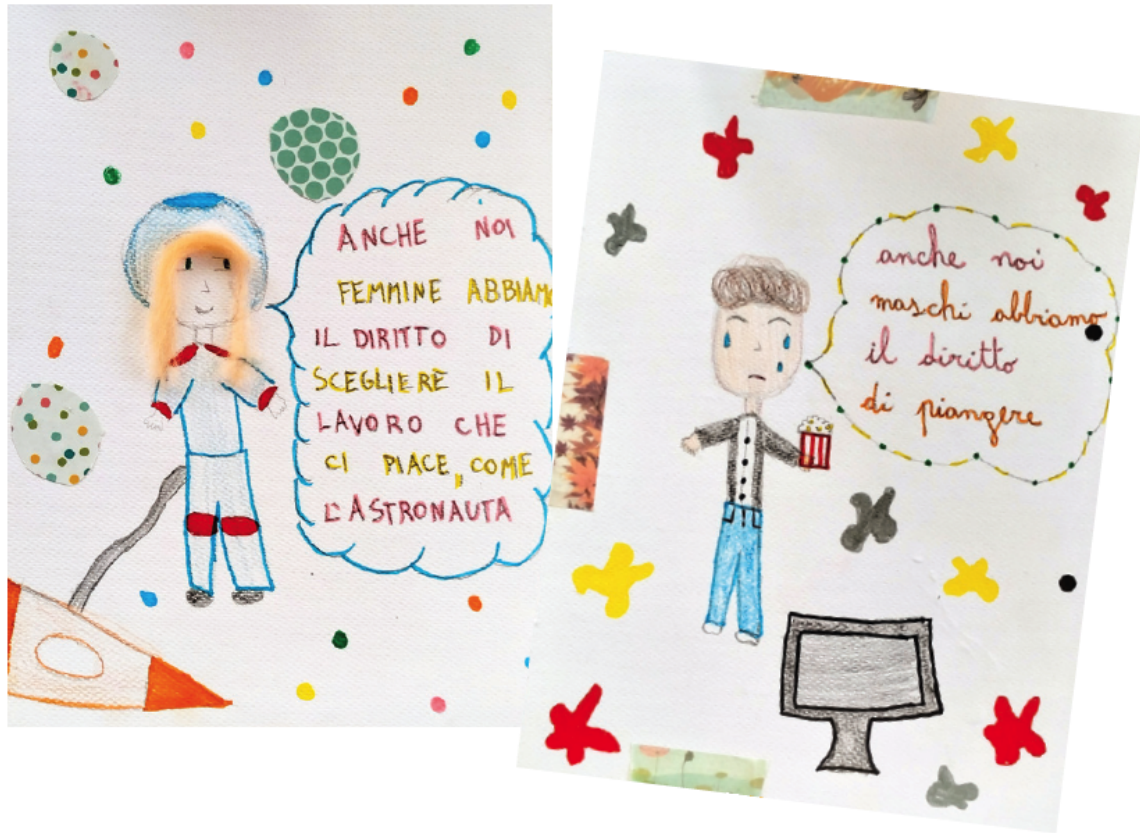 ANCHE NOI
FEMMINE ABBIAMO
IL DIRITTO DI
SCEGLIERE IL
LAVORO CHE
CI PIACE, COME
L'ASTRONAUTA
anche noi
maschi abbiamo
il diritto
di piangere